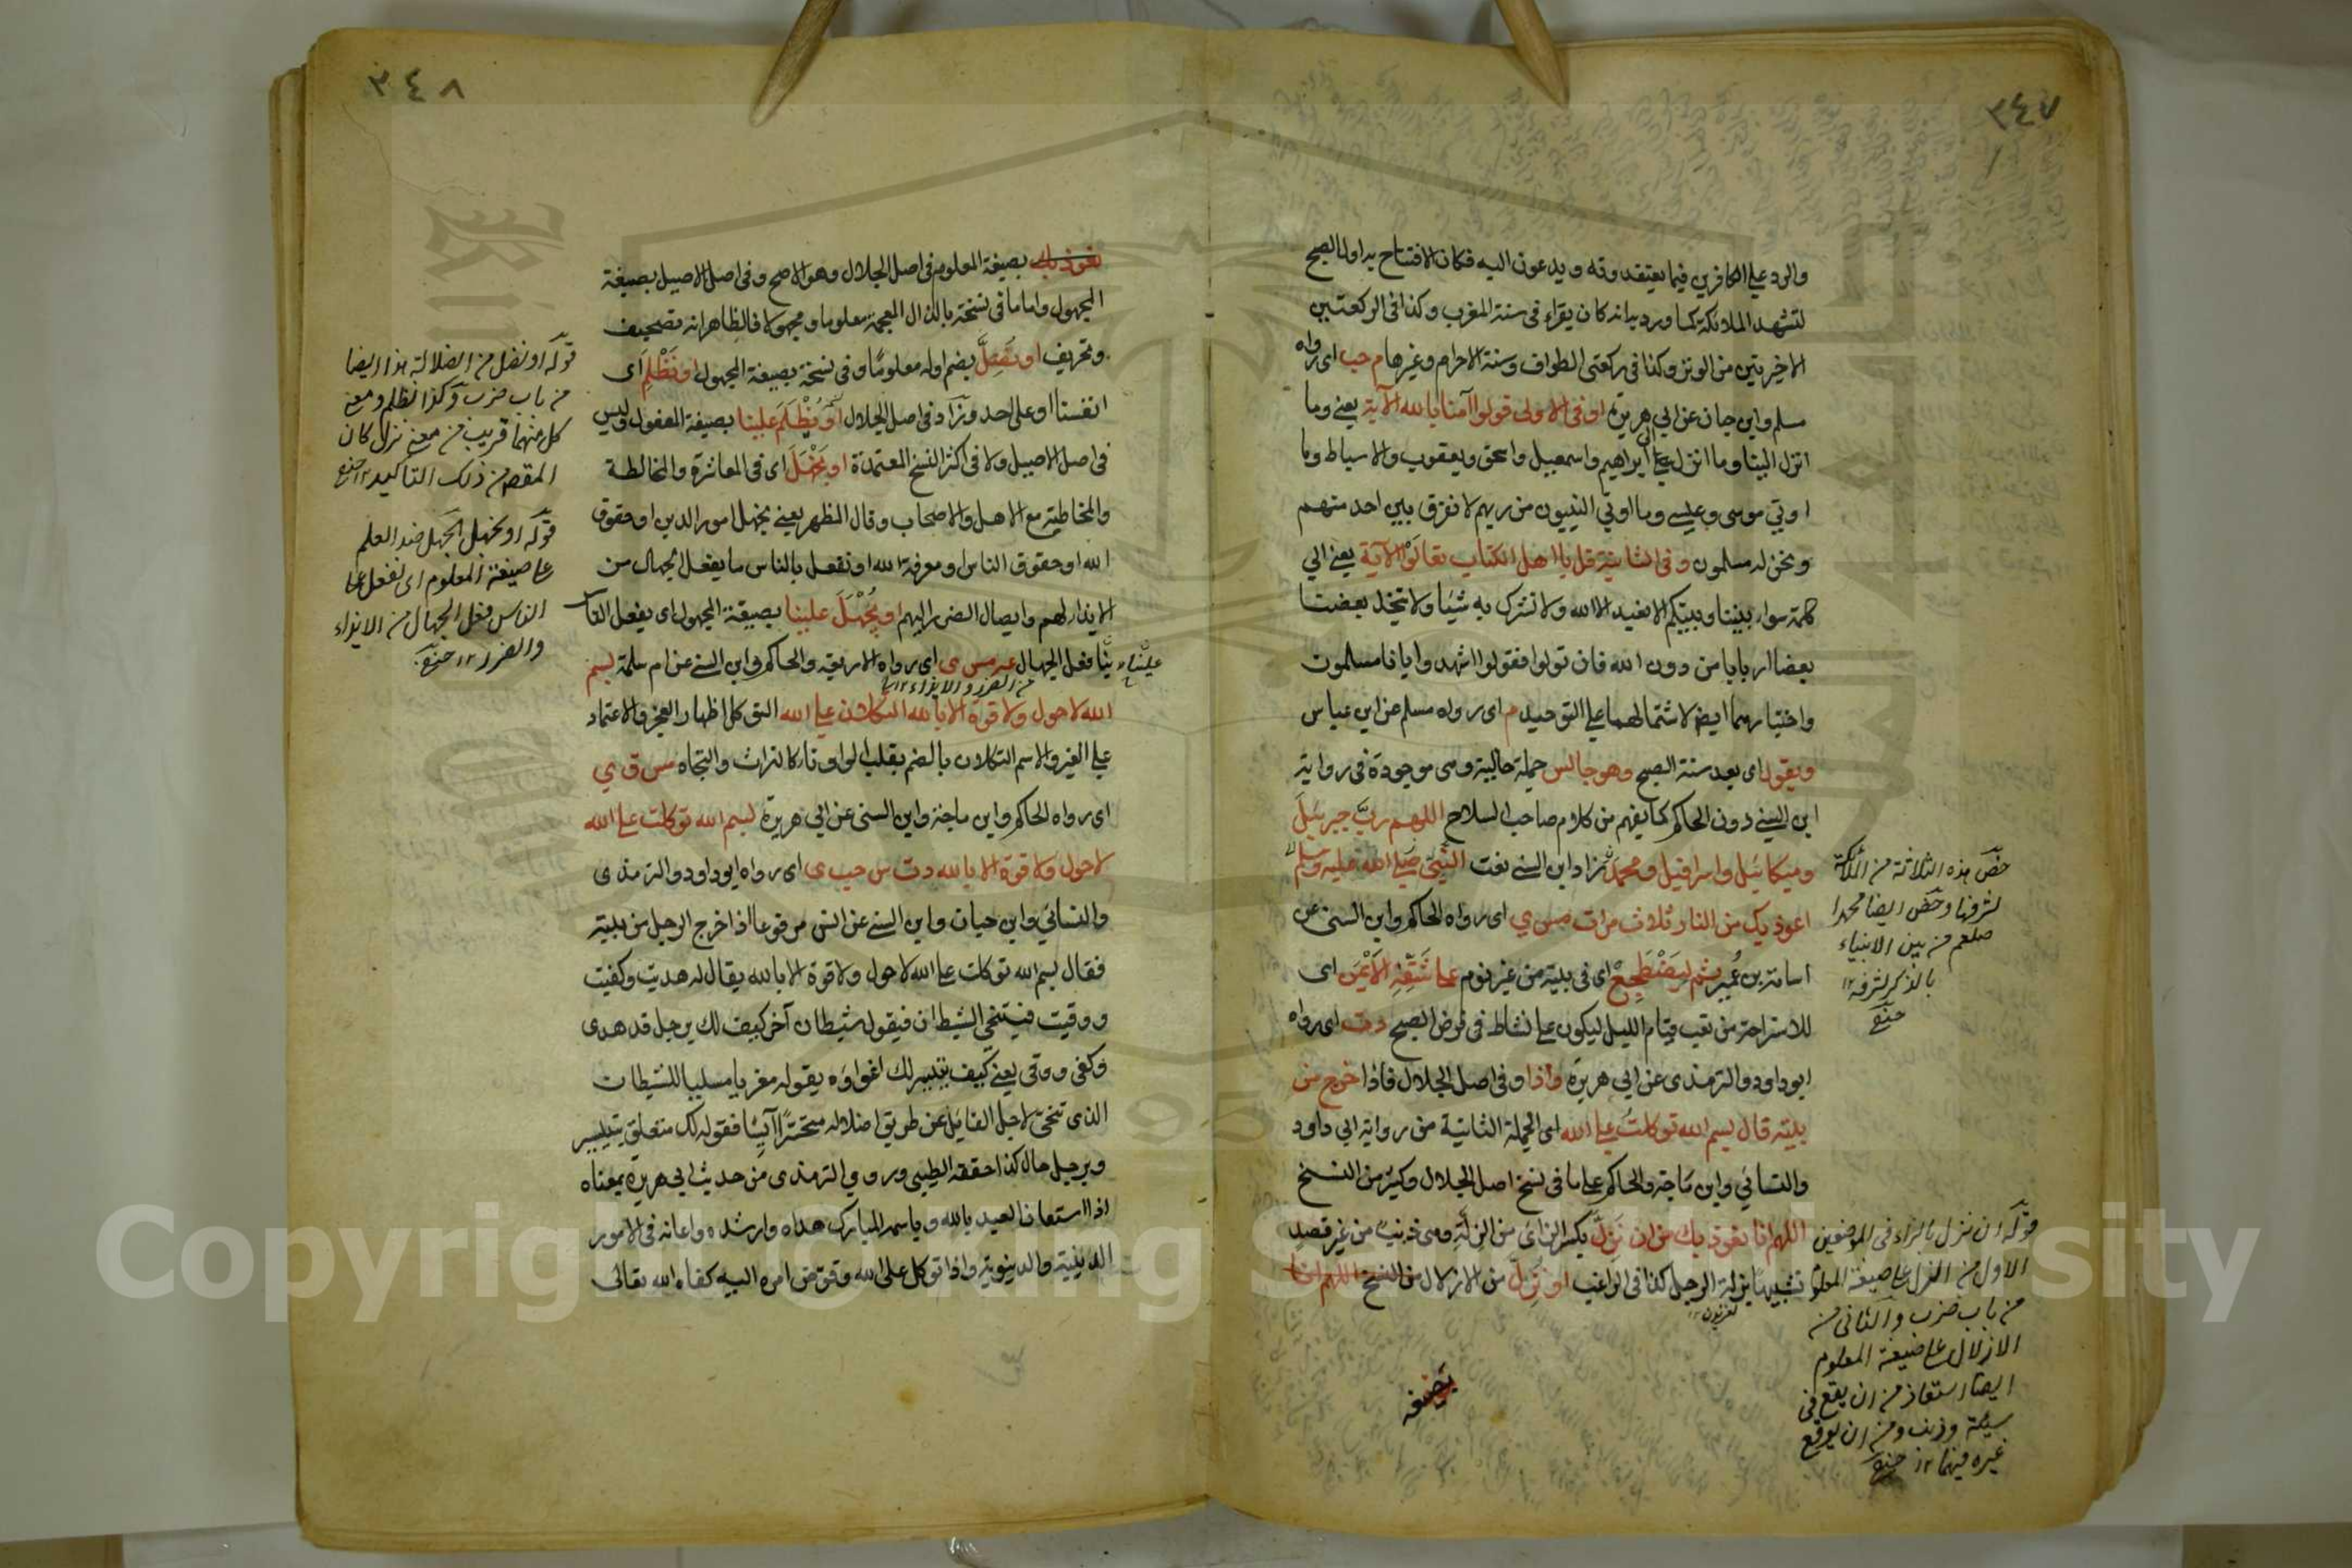 ٣٤٧
والرد علي الكافرين فيما يعتقدونه ويدعون اليه فكان الافتتاح به اول الصبح
لتشهد الملائكة كما ورد انه كان يقراء في سنة المغرب وكذا في الركعتين
الاخيرتين من الوتر وكذا في ركعتي الطواف وسنة الاحرام وغيرها م حب اى رواه
مسلم وابن حبان عن ابي هريرة او في الاولى قولوا آمنا بالله الآية يعني وما
انزل الينا وما انزل علي ابراهيم واسمعيل واسحق ويعقوب والاسباط وما
اوتي موسى وعيسي وما اوتي النبيون من ربهم لا نفرق بين احد منهم
ونحن له مسلمون وفي الثانية قل يا اهل الكتاب تعالوا الآية يعني الي
كلمة سواء بيننا وبينكم الا نعبد الا الله ولا نشرك به شيئا ولا يتخذ بعضنا
بعضا اربابا من دون الله فان تولوا فقولوا اشهدوا بانا مسلمون
واختيارهما ايضا لاشتمالهما علي التوحيد م اى رواه مسلم عن ابن عباس
ويقول اى بعد سنة الصبح وهو جالس جملة حالية وهى موجودة في رواية
ابن السني دون الحاكم كما يفهم من كلام صاحب السلاح اللهم ربَّ جبرئيل
وميكائيل واسرافيل ومحمد زاد ابن السني نعت النبي صلي الله عليه وسلم
اعوذ بك من النار ثلاث مرات مس ي اى رواه الحاكم وابن السنى عن
اسامة بن عمير ثم ليضطجع اى في بيته من غير نوم علي شقه الايمن اى
للاستراحة من تعب قيام الليل ليكون علي نشاط في فرض الصبح دت اى رواه
ابو داود والترمذى عن ابي هريرة واذا وفي اصل الجلال فاذا خرج من
بيته قال بسم الله توكلت علي الله اى الجملة الثانية من رواية ابي داود
والنسائي وابن ماجة والحاكم علي ما في نسخ اصل الجلال وكثير من النسخ
اللهم انا نعوذ بك من ان نزل بكسر الزاى من الزلة وهى ذنب من غير قصد
تشبيها بزلة الرجل كذا في الراغب او نزل من الازلال من النسخ اللهم انا
خص هذه الثلاثة من الملائكة
لشرفها وخص ايضا محمدا
صلعم من بين الانبياء
بالذكر لشرفه ١٢
قوله ان نزل بالزاء في الموضعين
الاول من الزل علي صيغة المعلوم
من باب ضرب والثانى من
الازلال علي صيغة المعلوم
ايضا استعاذ من ان يقع في
سيئة وذنب ومن ان يوقع
غيره فيهما ١٢
٣٤٨
نعوذ بك بصيغة المعلوم في اصل الجلال وهو الاصح وفي اصل الاصيل بصيغة
المجهول واما ما في نسخة بالذال المعجمة معلوما ومجهولا فالظاهر انه تصحيف
وتحريف او نضل بضم اوله معلوما وفي نسخة بصيغة المجهول او نظلم اى
انفسنا او على احد وزاد في اصل الجلال او يظلم علينا بصيغة المفعول وليس
في اصل الاصيل ولا في اكثر النسخ المعتمدة او نجهل اى في المعاشرة والمخالطة
والمخاطبة مع الاهل والاصحاب وقال المظهر يعني نجهل امور الدين او حقوق
الله او حقوق الناس او معرفة الله او نفعل بالناس ما يفعل الجهال من
الايذاء لهم وايصال الضرر اليهم او يجهل علينا بصيغة المجهول اى يفعل الناس
بنا فعل الجهال عه مس ى اى رواه الاربعة والحاكم وابن السني عن ام سلمة بسم
من الضرر والايذاء ١٢
الله لا حول ولا قوة الا بالله التكلان علي الله التوكل اظهار العجز والاعتماد
علي الغير والاسم التكلان بالضم بقلب الواو تاء كالتراث والتجاه مس ق ي
اى رواه الحاكم وابن ماجة وابن السنى عن ابي هريرة بسم الله توكلت علي الله
لا حول ولا قوة الا بالله دت س حب ى اى رواه ابو داود والترمذى
والنسائي وابن حبان وابن السني عن انس مرفوعا اذا خرج الرجل من بيته
فقال بسم الله توكلت علي الله لا حول ولا قوة الا بالله يقال له هديت وكفيت
ووقيت فيتنحي الشيطان فيقول شيطان آخر كيف لك برجل قد هدى
وكفى ووقى يعني كيف يتيسر لك اغواؤه يقوله معزيا مسليا للشيطان
الذى تنحى لاجل القائل عن طريق اضلاله متحسرا آيسا فقوله لك متعلق بتيسر
وبرجل حال كذا حققه الطيبي وروى الترمذى من حديث ابي هريرة بمعناه
اذا استعان العبد بالله وباسمه المبارك هداه وارشده واعانه في الامور
الدينية والدنيوية واذا توكل على الله وفوض امره اليه كفاه الله تعالى
قوله او نضل من الضلالة هذا ايضا
من باب ضرب وكذا نظلم ومعنى
كل منهما قريب من معنى نزل كان
المقصد من ذلك التاكيد ١٢
قوله او نجهل الجهل ضد العلم
علي صيغة المعلوم اى نفعل علي
الناس فعل الجهال من الايذاء
والضرر ١٢
Copyright © King Saud University